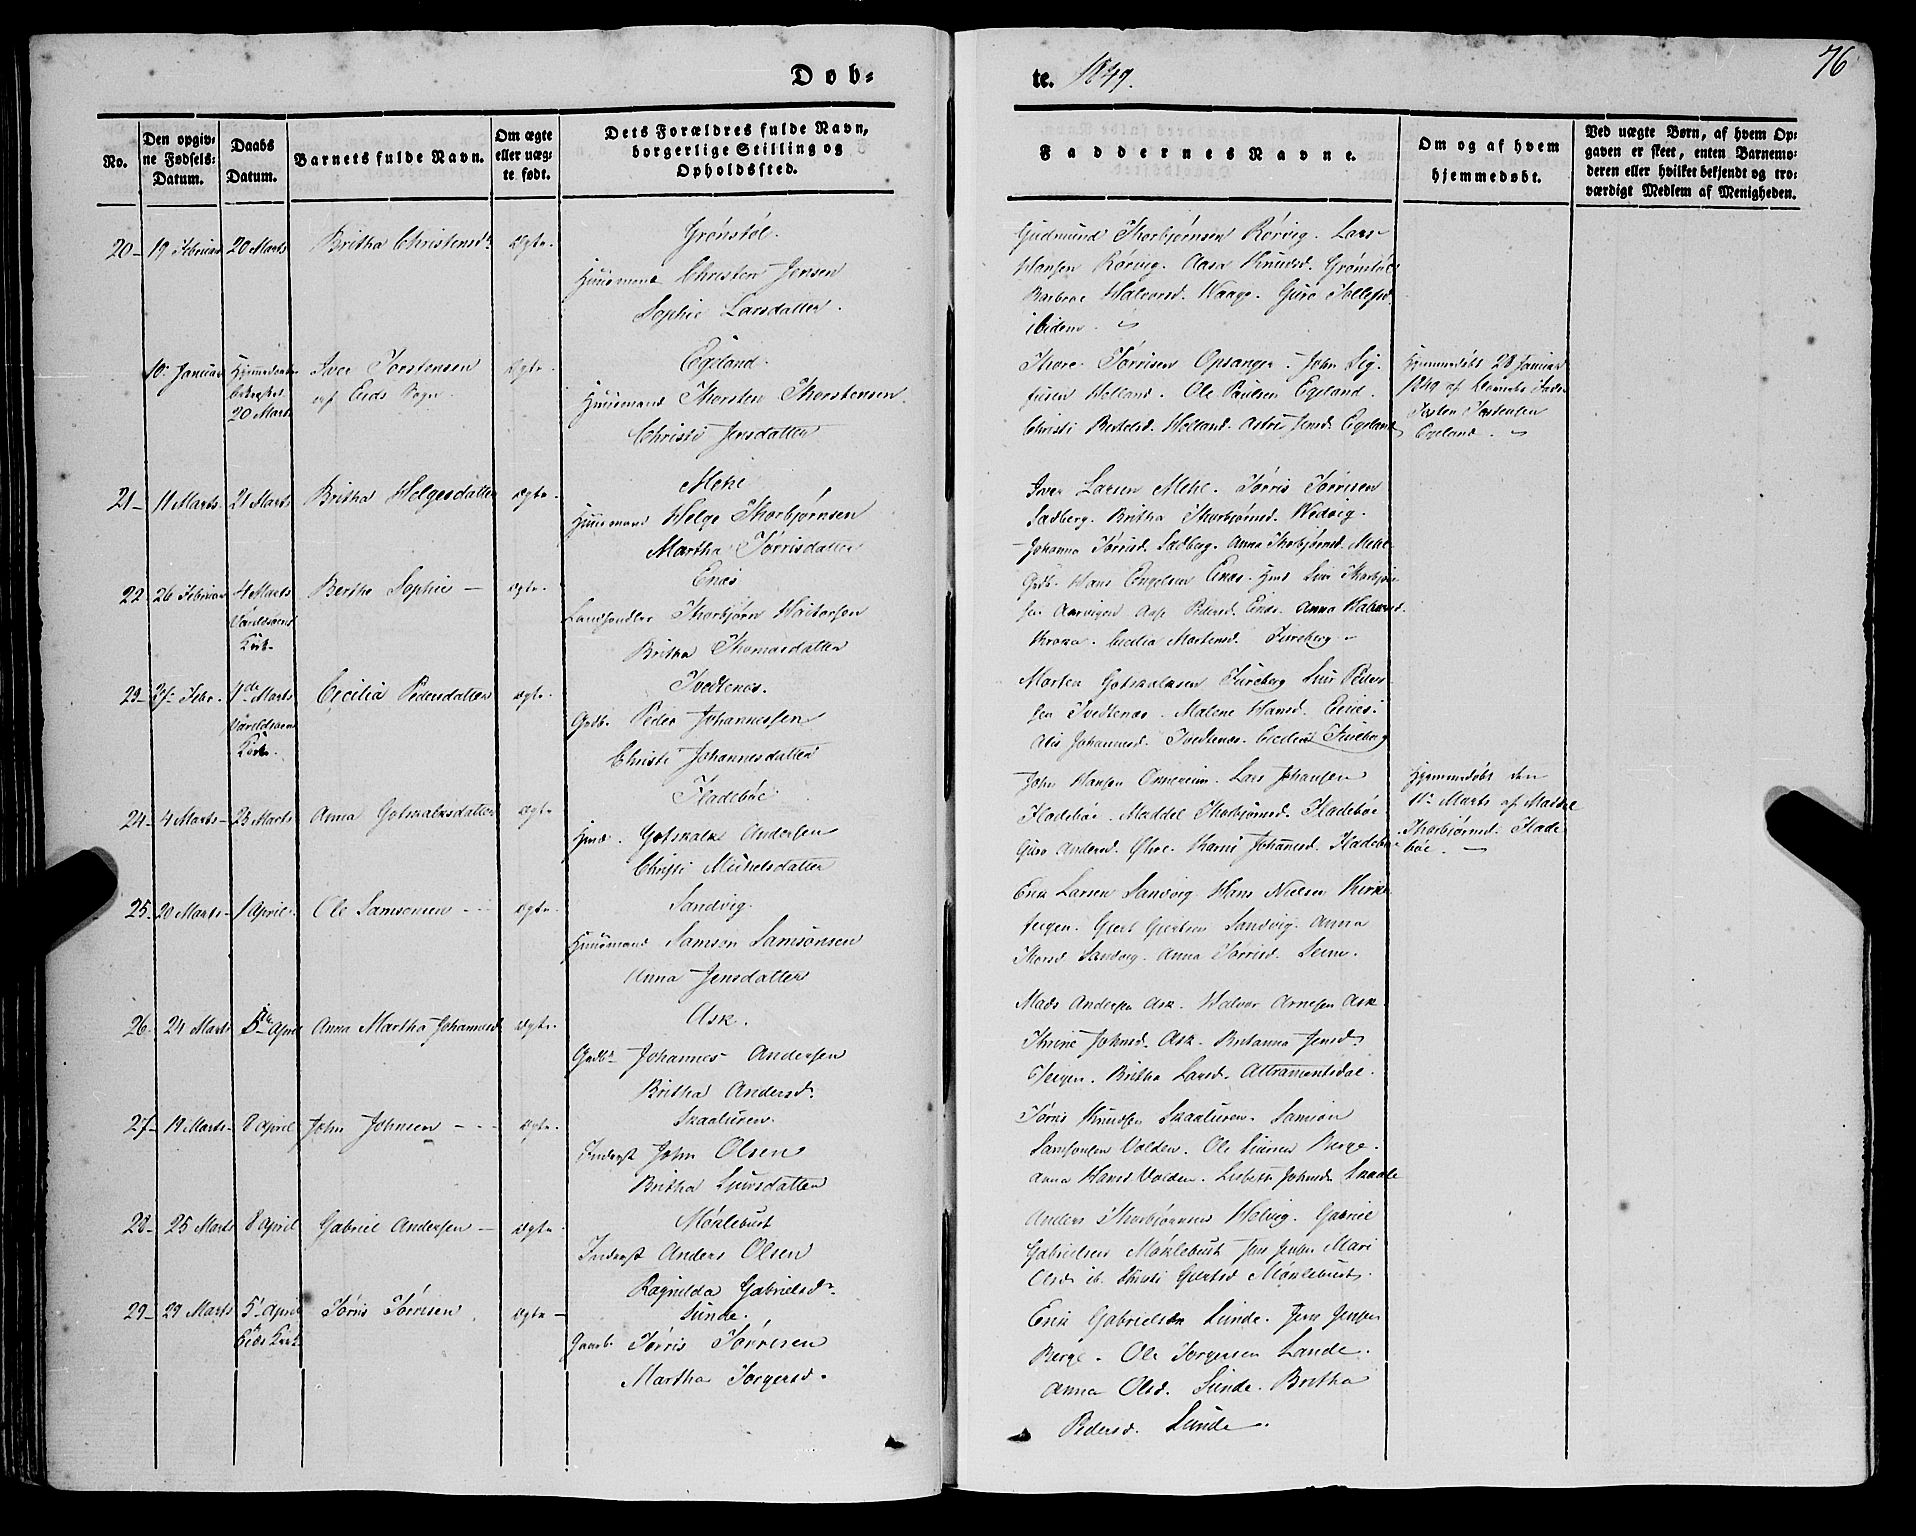 76
Døb-
te. 1849.
No.
Den opgiv-
ne Fødsels-
Datum.
Daabs
Datum.
Barnets fulde Navn.
Om ægte
eller uæg-
te født.
Dets Forældres fulde Navn,
borgerlige Stilling og
Opholdssted.
Faddernes Navne.
Om og af hvem
hjemmedøbt.
Ved uægte Børn, af hvem Op-
gaven er skeet, enten Barnemo-
deren eller hvilket bekjendt og tro-
værdigt Medlem af Menigheden.
20- 19 Februar 20 Marts Britha Christensdr ægte.
Grønstøl.
Huusmand Christen Jensen
Sophie Larsdatter.
Gudmund Thorbjørnsen Rørvig. Lars
Hansen Rørvig. Aasa Knudsd. Grønstøl
Barbroe Halvorsd. Waage. Guro Tollefsd.
ibidem.
10. Januar Hjemmedøbt
20 Marts
Iver Torstensen
af Eids Sogn.
ægte.
Egeland.
Huusmand Thorsten Thorstensen.
Christi Jensdatter
Thore Tørrisen Opsanger. John Sig-
fusen Helland. Ole Paulsen Egeland.
Christi Bertelsd. Helland. Astri Jensd. Egeland
Hjemmedøbt 28 Januar
1849 af Barnets Fader
Torsten Torstensen
Egeland.
21- 11 Marts. 21 Marts Britha Helgesdatter ægte.
Mehl
Huusmand Helge Thorbjørnsen
Martha Tørrisdatter
Iver Larsen Mehl. Tørris Tørrisen
Sadberg. Britha Thorbjørnsd. Wedvig.
Johanna Tørrisd. Sadberg. Anna Thorbjørnsd. Mehl
22- 26 Februar 4 Marts
Varaldsøens
Kirk.
Berthe Sophie - ægte.
Enæs
Landhandler Thorbjørn
Britha Thomasdatter
Gdb. Hans Engelsen Enæs. Thorbjørn-
sen Aarvigen Aase Pedersd. Enæs. Anna Halvorsd.
Kroka. Cecilia Mortensd. Fureberg.
23- 27 Febr. 4de Marts
Varaldsøens
Kirke.
Cecilia Pedersdatter ægte.
Tvedtenæs.
Gdb. Peder Johannessen
Christi Johannesdatter
Morten Gotskalksen Fureberg Peder-
sen Tvedtenæs. Malene Hansd. Enæs.
Johannesd. Tvedtenæs. Cecilia Fureberg
24- 4 Marts- 25 Marts Anna Gotskalksdatter ægte
Fladebøe
Huusm. Gotskalk Andersen
Christi Michelsdatter
John Hansen Omereim. Lars Johansen
Fladebøe. Maddel Thorbjørnsd. Fladebøe
Guro Andersd. Ølve. Kari Johannsd. Fladebøe.
Hjemmedøbt den
11te Marts af Maddel
Thorbjørnsd. Flade-
bøe.
25- 20 Marts- 1 April. Ole Samsonsen - ægte.
Sandvig.
Huusmand Samson Samsonsen
Anna Jensdatter
Erik Larsen Sandvig. Hans Nielsen Kirke-
teigen. Giert Giertsen Sandvig. Anna
Thorsd. Sandvig. Anna Tørrisd. Seim.
26- 24 Marts 5te April Anna Martha Johannesd. ægte.
Ask.
Gdbr. Johannes Andersen
Britha Andersd.
Mads Andersen Ask. Halvor Arnesen Ask.
Thrine Johnsd. Ask. Britanna Jensd.
Teigen. Britha Larsd. Attramentsdal.
27- 19 Marts- 8 April John Johnsen - - - ægte.
Skaaluren.
Inderst John Olsen
Britha Sjursdatter
Tørris Knudsen Skaaluren. Samson
Samsonsen Valden. Ole Berge.
Anna Hansd. Valden. Lisbeth Johnsd. Skaale
28- 25 Marts 8 April Gabriel Andersen - ægte.
Møklebust
Inderst Anders Olsen
Ragnilda Gabrielsdr.
Anders Thorbjørnsen Helvig. Gabriel
Gabrielsen Møklebust Jens Jensen Mari
Olsd. ib. Christi Giertsd. Møklebust.
29- 29 Marts 5 April
Eids Kirk
Tørris Tørrisen ægte -
Sunde.
Gaardb. Tørris Tørrisen
Martha Torgersd.
Erik Gabrielsen Sunde. Jens Jensen
Berge. Ole Torgersen Lande.
Anna Olsd. Sunde. Britha
Pedersd. Sunde.